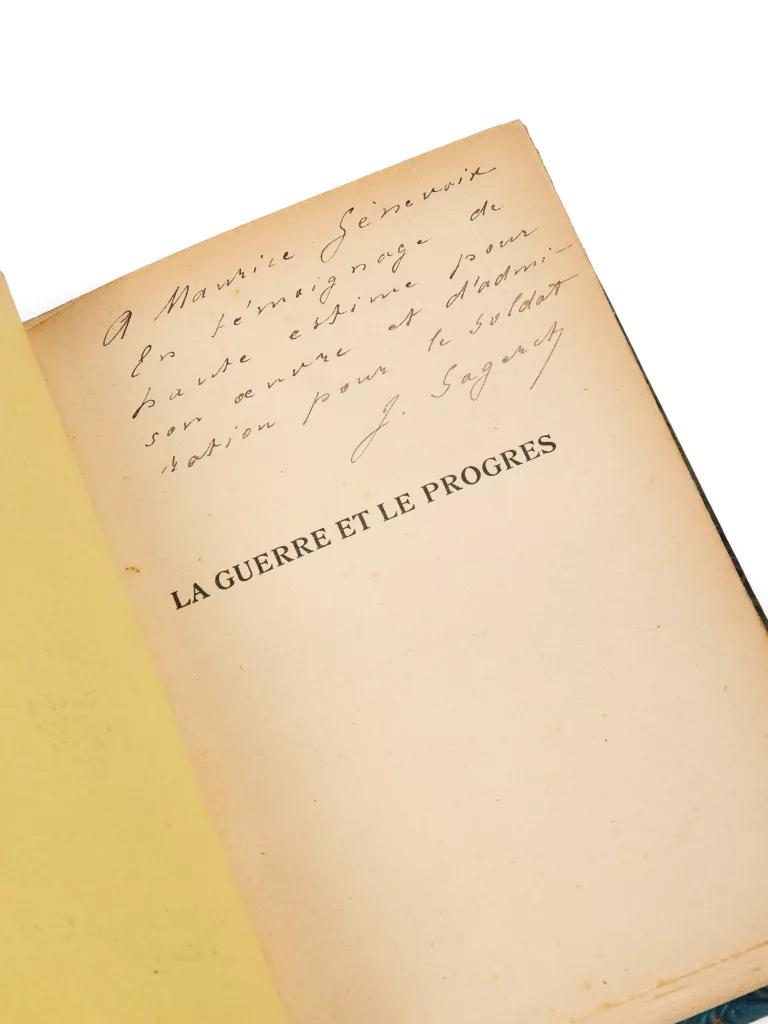 A Maurice Génevoix
En témoignage de
haute estime pour
son œuvre et d'admi-
ration pour le soldat
J. Sageret
LA GUERRE ET LE PROGRES